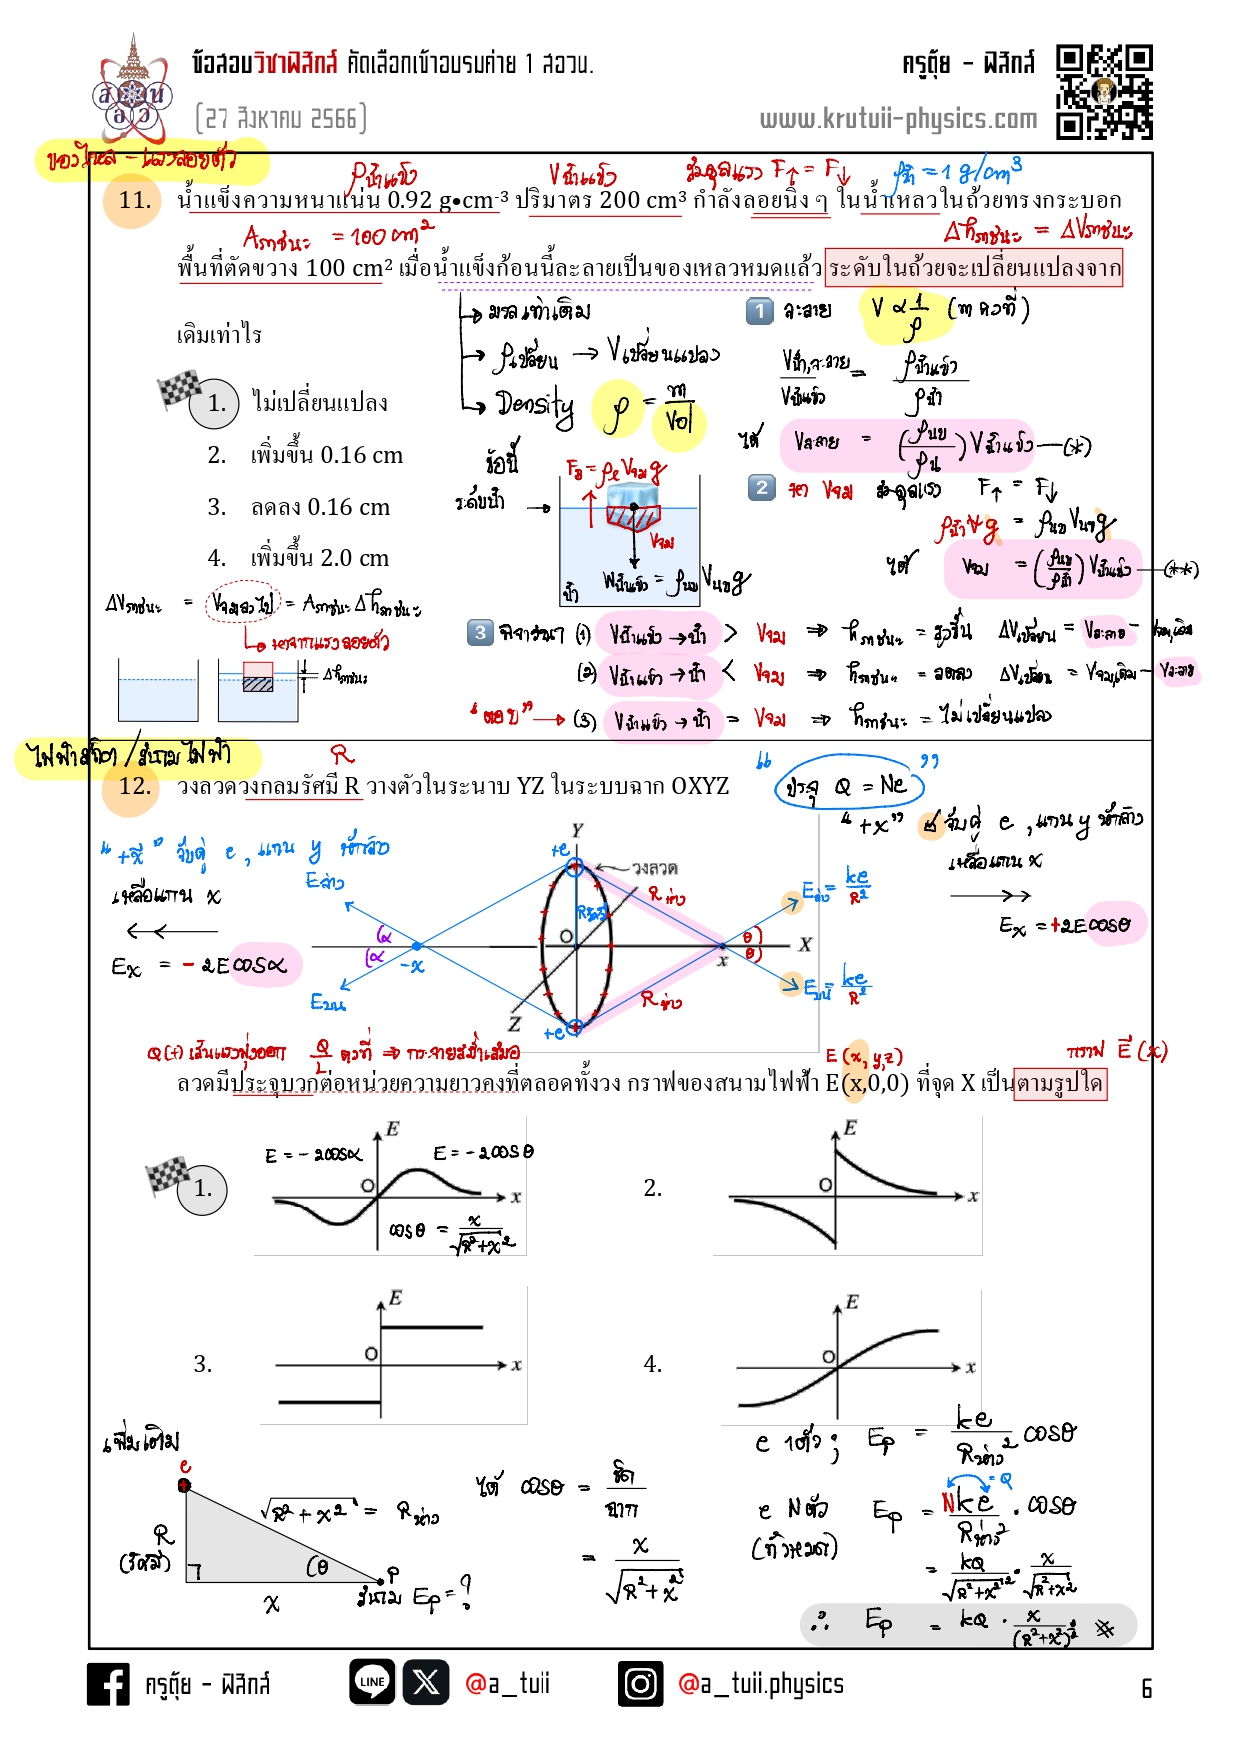 ข้อสอบวิชาฟิสิกส์ คัดเลือกเข้าอบรมค่าย 1 สอวน.
ครูตุ้ย - ฟิสิกส์
(27 สิงหาคม 2566)
www.krutuii-physics.com
ของไหล - แรงลอยตัว
ρน้ำแข็ง
Vน้ำแข็ง
สมดุลแรง F↑ = F↓
ρน้ำ = 1 g/cm³
11. น้ำแข็งความหนาแน่น 0.92 g•cm⁻³ ปริมาตร 200 cm³ กำลังลอยนิ่ง ๆ ในน้ำเหลวในถ้วยทรงกระบอก
Aภาชนะ = 100 cm²
Δhภาชนะ = ΔVภาชนะ
พื้นที่ตัดขวาง 100 cm² เมื่อน้ำแข็งก้อนนี้ละลายเป็นของเหลวหมดแล้ว ระดับในถ้วยจะเปลี่ยนแปลงจาก
เดิมเท่าไร
มวลเท่าเดิม
ρเปลี่ยน → Vเปลี่ยนแปลง
Density ρ = m/Vol
1 ละลาย V ∝ 1/ρ (m คงที่)
Vน้ำ,ละลาย/Vน้ำแข็ง = ρน้ำแข็ง/ρน้ำ
ได้ Vละลาย = (ρนข/ρน) Vน้ำแข็ง —(*)
1. ไม่เปลี่ยนแปลง
2. เพิ่มขึ้น 0.16 cm
3. ลดลง 0.16 cm
4. เพิ่มขึ้น 2.0 cm
ข้อนี้
ระดับน้ำ
Vจม
น้ำ
Wน้ำแข็ง = ρนข Vนข g
2 หา Vจม สมดุลแรง F↑ = F↓
ρน้ำ V g = ρนข Vนข g
ได้ Vจม = (ρนข/ρน้ำ) Vน้ำแข็ง —(**)
ΔVภาชนะ = Vจมลงไป = Aภาชนะ Δhภาชนะ
หาจากแรงลอยตัว
Δhภาชนะ
3 พิจารณา (1) Vน้ำแข็ง→น้ำ > Vจม ⇒ hภาชนะ = สูงขึ้น ΔVเปลี่ยน = Vละลาย - Vจม,เดิม
(2) Vน้ำแข็ง→น้ำ < Vจม ⇒ hภาชนะ = ลดลง ΔVเปลี่ยน = Vจม,เดิม - Vละลาย
"ตอบ" → (3) Vน้ำแข็ง→น้ำ = Vจม ⇒ hภาชนะ = ไม่เปลี่ยนแปลง
ไฟฟ้าสถิต / สนามไฟฟ้า
R
12. วงลวดวงกลมรัศมี R วางตัวในระนาบ YZ ในระบบฉาก OXYZ
"ประจุ Q = Ne"
"+x" จับคู่ e, แกน y หักล้าง
เหลือแกน x
Ex = +2E cosθ
"-x" จับคู่ e, แกน y หักล้าง
เหลือแกน x
Ex = - 2E cosα
Y
+e
วงลวด
Eล่าง
Rห่าง
Eล่าง = ke/R²
O
X
x
-x
α
α
θ
θ
Eบน
Rห่าง
Eบน = ke/R²
Z
+e
Q(+) เส้นแรงพุ่งออก Q/L คงที่ ⇒ กระจายสม่ำเสมอ
E(x,y,z)
กราฟ E(x)
ลวดมีประจุบวกต่อหน่วยความยาวคงที่ตลอดทั้งวง กราฟของสนามไฟฟ้า E(x,0,0) ที่จุด X เป็นตามรูปใด
1.
E
E = - 2cosα
E = - 2cosθ
O
x
cosθ = x/√R²+x²
2.
E
O
x
3.
E
O
x
4.
E
O
x
เพิ่มเติม
e
√R²+x² = Rห่าง
R
(รัศมี)
θ
P
x
สนาม Ep = ?
ได้ cosθ = ชิด/ฉาก
= x/√R²+x²
e 1 ตัว ; Ep = ke/Rห่าง² cosθ
= Q
e N ตัว Ep = Nke/Rห่าง² · cosθ
(ทั้งหมด)
= kQ/√R²+x²² · x/√R²+x²
∴ Ep = kQ · x/(R²+x²)^3/2 #
ครูตุ้ย - ฟิสิกส์
LINE
@a_tuii
@a_tuii.physics
6